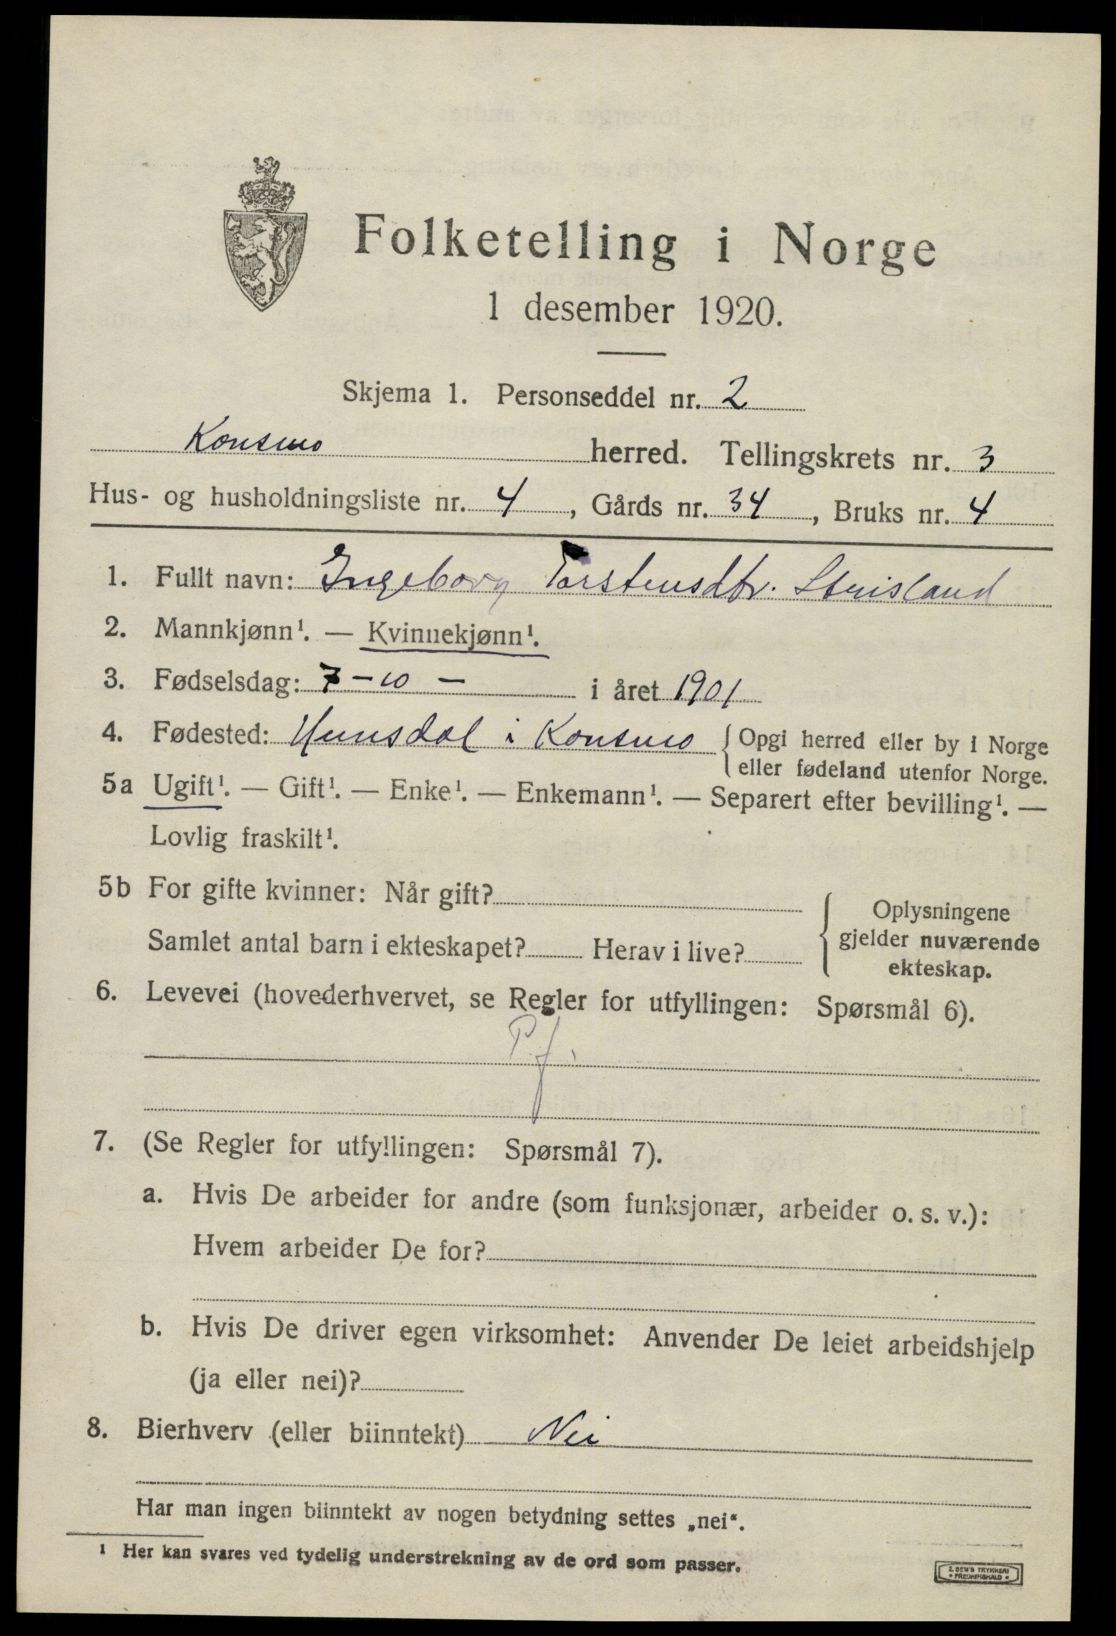 Folketelling i Norge
1 desember 1920.
Skjema 1. Personseddel nr. 2
Konsmo herred. Tellingskrets nr. 3
Hus- og husholdningsliste nr. 4, Gårds nr. 34, Bruks nr. 4
1. Fullt navn: Ingeborg Torstensdtr. Stuisland
2. Mannkjønn¹. — Kvinnekjønn¹.
3. Fødselsdag: 7-10- i året 1901
4. Fødested: Hunsdal i Konsmo { Opgi herred eller by i Norge
eller fødeland utenfor Norge.
5a Ugift¹. — Gift¹. — Enke¹. — Enkemann¹. — Separert efter bevilling¹. —
Lovlig fraskilt¹.
5b For gifte kvinner: Når gift?
Samlet antal barn i ekteskapet? Herav i live?
{ Oplysningene
gjelder nuværende
ekteskap.
6. Levevei (hovederhvervet, se Regler for utfyllingen: Spørsmål 6).
P.f.
7. (Se Regler for utfyllingen: Spørsmål 7).
a. Hvis De arbeider for andre (som funksjonær, arbeider o. s. v.):
Hvem arbeider De for?
b. Hvis De driver egen virksomhet: Anvender De leiet arbeidshjelp
(ja eller nei)?
8. Bierhverv (eller biinntekt) Nei
Har man ingen biinntekt av nogen betydning settes „nei“.
¹ Her kan svares ved tydelig understrekning av de ord som passer.
E. SEM'S TRYKKERI
• FREDRIKSHALD •